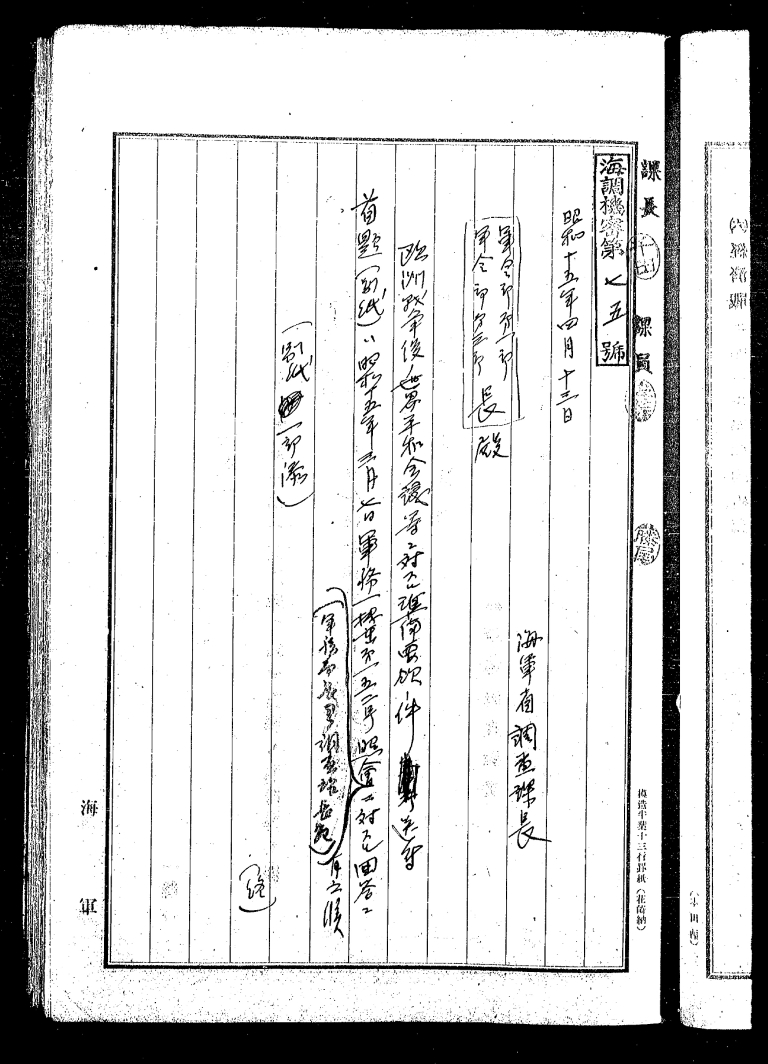 課長
課員
海調機密第七五號
昭和十五年四月十三日
海軍省調査課長
軍令部第一部
軍令部第三部
長殿
欧洲戦争後ノ世界平和会議等ニ対スル準備要領ノ件
送付
首題(別紙)ハ昭和十五年三月七日軍務一機密第一五二号照會ニ対スル回答ニ
(軍務局長ヨリ調査課長宛)
有之候
(別紙一部添)
(終)
海軍